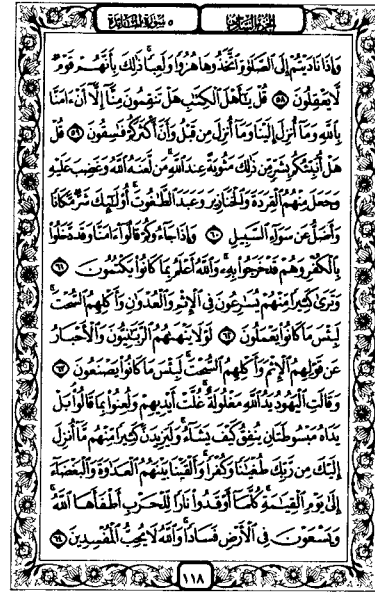 الجزء السادس
٥ سورة المائدة
وَإِذَا نَادَيْتُمْ إِلَى ٱلصَّلَوٰةِ ٱتَّخَذُوهَا هُزُوًا وَلَعِبًا ذَٰلِكَ بِأَنَّهُمْ قَوْمٌ
لَّا يَعْقِلُونَ ٥٨ قُلْ يَٰٓأَهْلَ ٱلْكِتَٰبِ هَلْ تَنقِمُونَ مِنَّآ إِلَّآ أَنْ ءَامَنَّا
بِٱللَّهِ وَمَآ أُنزِلَ إِلَيْنَا وَمَآ أُنزِلَ مِن قَبْلُ وَأَنَّ أَكْثَرَكُمْ فَٰسِقُونَ ٥٩ قُلْ
هَلْ أُنَبِّئُكُم بِشَرٍّ مِّن ذَٰلِكَ مَثُوبَةً عِندَ ٱللَّهِ مَن لَّعَنَهُ ٱللَّهُ وَغَضِبَ عَلَيْهِ
وَجَعَلَ مِنْهُمُ ٱلْقِرَدَةَ وَٱلْخَنَازِيرَ وَعَبَدَ ٱلطَّٰغُوتَ أُو۟لَٰٓئِكَ شَرٌّ مَّكَانًا
وَأَضَلُّ عَن سَوَآءِ ٱلسَّبِيلِ ٦٠ وَإِذَا جَآءُوكُمْ قَالُوٓا۟ ءَامَنَّا وَقَد دَّخَلُوا۟
بِٱلْكُفْرِ وَهُمْ قَدْ خَرَجُوا۟ بِهِۦ وَٱللَّهُ أَعْلَمُ بِمَا كَانُوا۟ يَكْتُمُونَ ٦١
وَتَرَىٰ كَثِيرًا مِّنْهُمْ يُسَٰرِعُونَ فِى ٱلْإِثْمِ وَٱلْعُدْوَٰنِ وَأَكْلِهِمُ ٱلسُّحْتَ
لَبِئْسَ مَا كَانُوا۟ يَعْمَلُونَ ٦٢ لَوْلَا يَنْهَىٰهُمُ ٱلرَّبَّٰنِيُّونَ وَٱلْأَحْبَارُ
عَن قَوْلِهِمُ ٱلْإِثْمَ وَأَكْلِهِمُ ٱلسُّحْتَ لَبِئْسَ مَا كَانُوا۟ يَصْنَعُونَ ٦٣
وَقَالَتِ ٱلْيَهُودُ يَدُ ٱللَّهِ مَغْلُولَةٌ غُلَّتْ أَيْدِيهِمْ وَلُعِنُوا۟ بِمَا قَالُوا۟ بَلْ
يَدَاهُ مَبْسُوطَتَانِ يُنفِقُ كَيْفَ يَشَآءُ وَلَيَزِيدَنَّ كَثِيرًا مِّنْهُم مَّآ أُنزِلَ
إِلَيْكَ مِن رَّبِّكَ طُغْيَٰنًا وَكُفْرًا وَأَلْقَيْنَا بَيْنَهُمُ ٱلْعَدَٰوَةَ وَٱلْبَغْضَآءَ
إِلَىٰ يَوْمِ ٱلْقِيَٰمَةِ كُلَّمَآ أَوْقَدُوا۟ نَارًا لِّلْحَرْبِ أَطْفَأَهَا ٱللَّهُ
وَيَسْعَوْنَ فِى ٱلْأَرْضِ فَسَادًا وَٱللَّهُ لَا يُحِبُّ ٱلْمُفْسِدِينَ ٦٤
١١٨